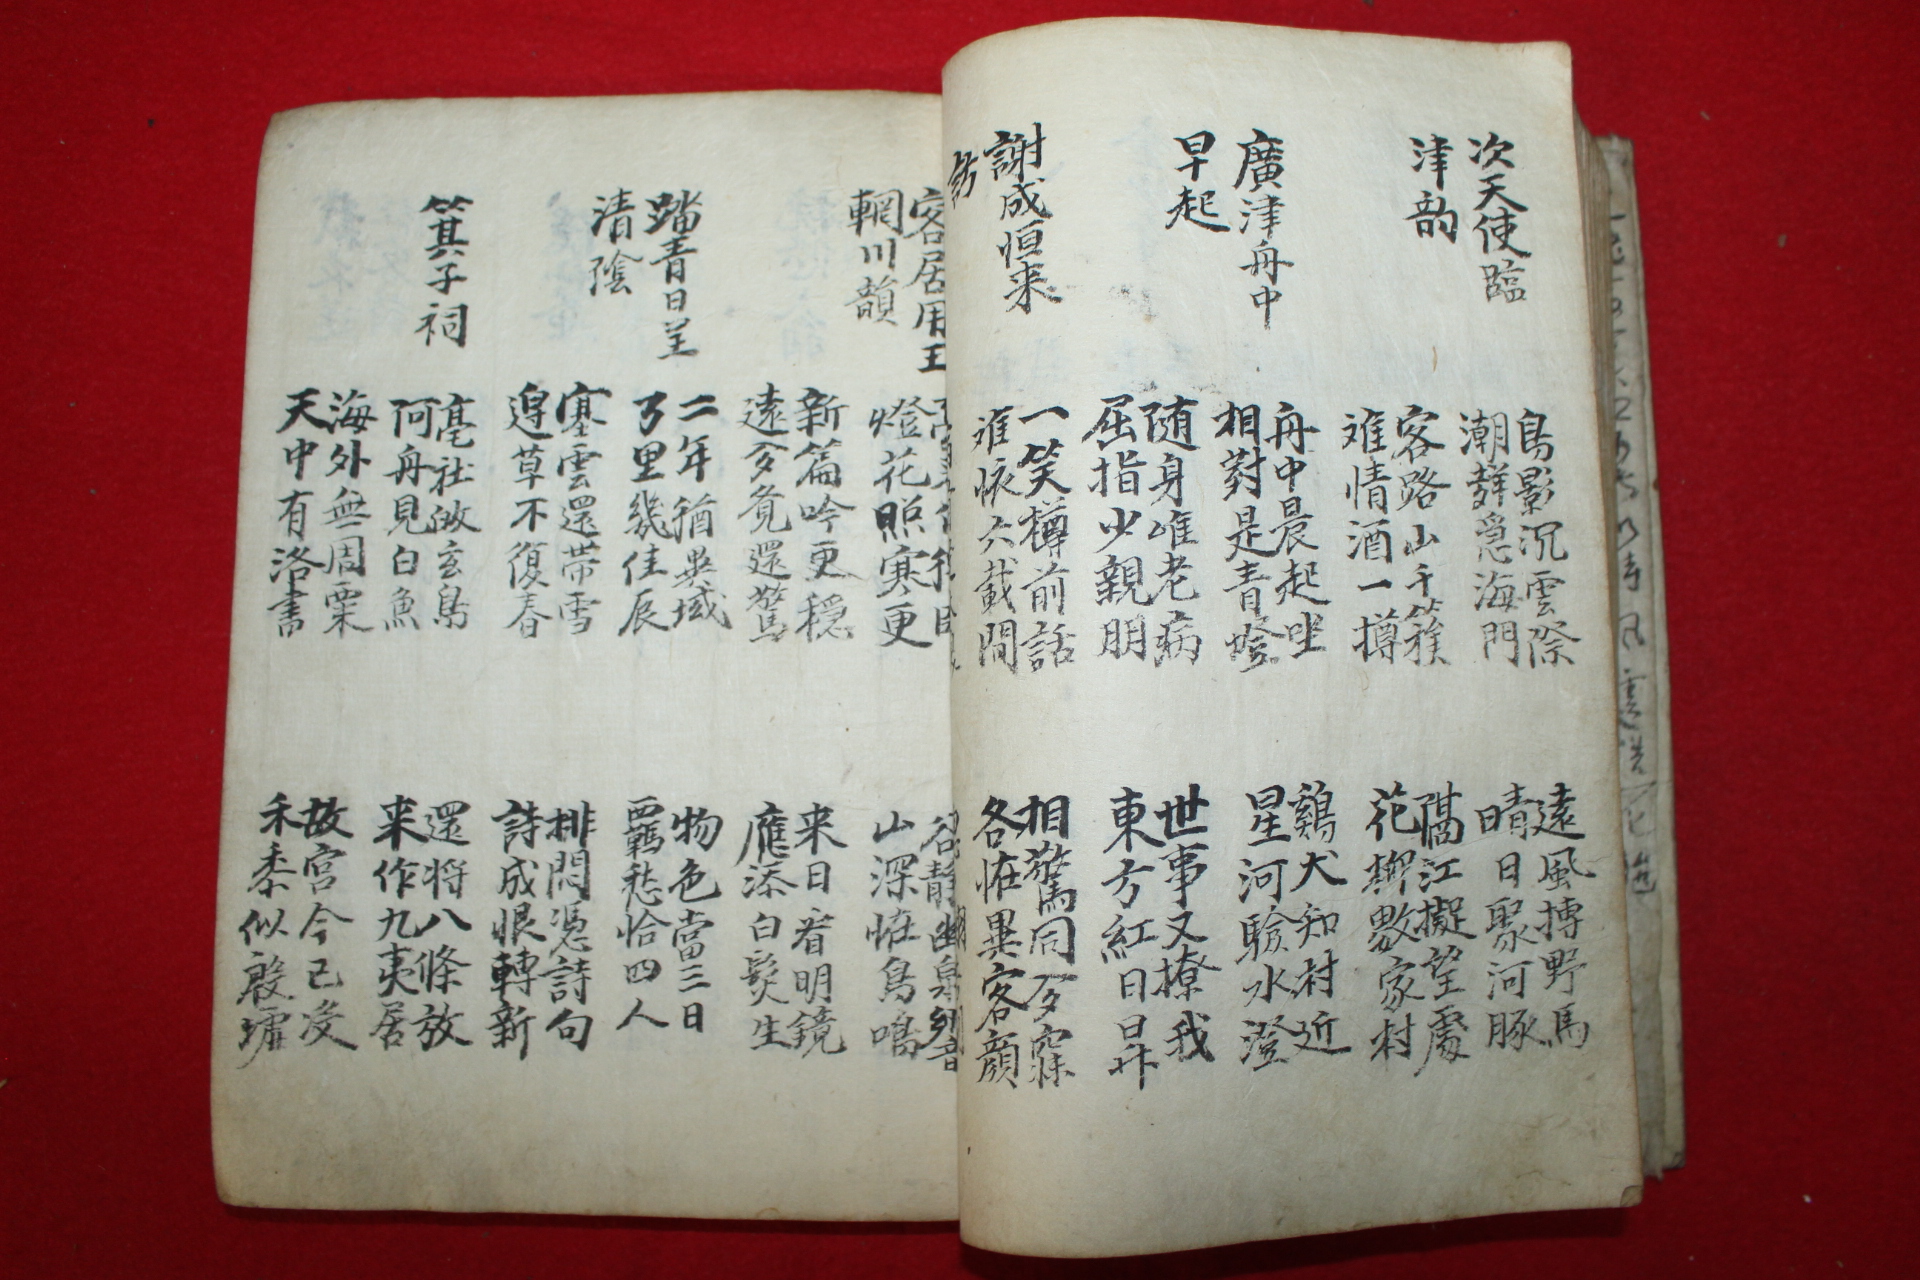 次天使臨
津韵
鳥影沉雲際
潮群隠海門
遠風搏野馬
晴日聚河豚
客路山千簇
难情酒一撙
隔江擬望處
花柳數家村
廣津舟中
早起
舟中晨起坐
相對是青燈
鷄犬知村近
星河驗水澄
随身唯老病
屈指少親朋
世事又撩我
東方紅日昇
謝成恒来
訪
一笑樽前話
难恢六載間
相驚同歹寐
各恠異客顔
客居用王
輞川韻
燈花照寒更
山深恠鳥鳴
新篇吟更穏
遠歹覓還驚
来日看明鏡
應添白髮生
踏青日呈
清陰
二年猶異域
弓里幾佳辰
物色當三日
羈愁恰四人
塞雲還帯雪
邉草不復春
排悶憑詩句
詩成恨轉新
箕子祠
亳社玄鳥
何舟見白魚
還将八條放
来作九夷居
海外無周粟
天中有洛書
故宮今已没
禾黍似殷墟